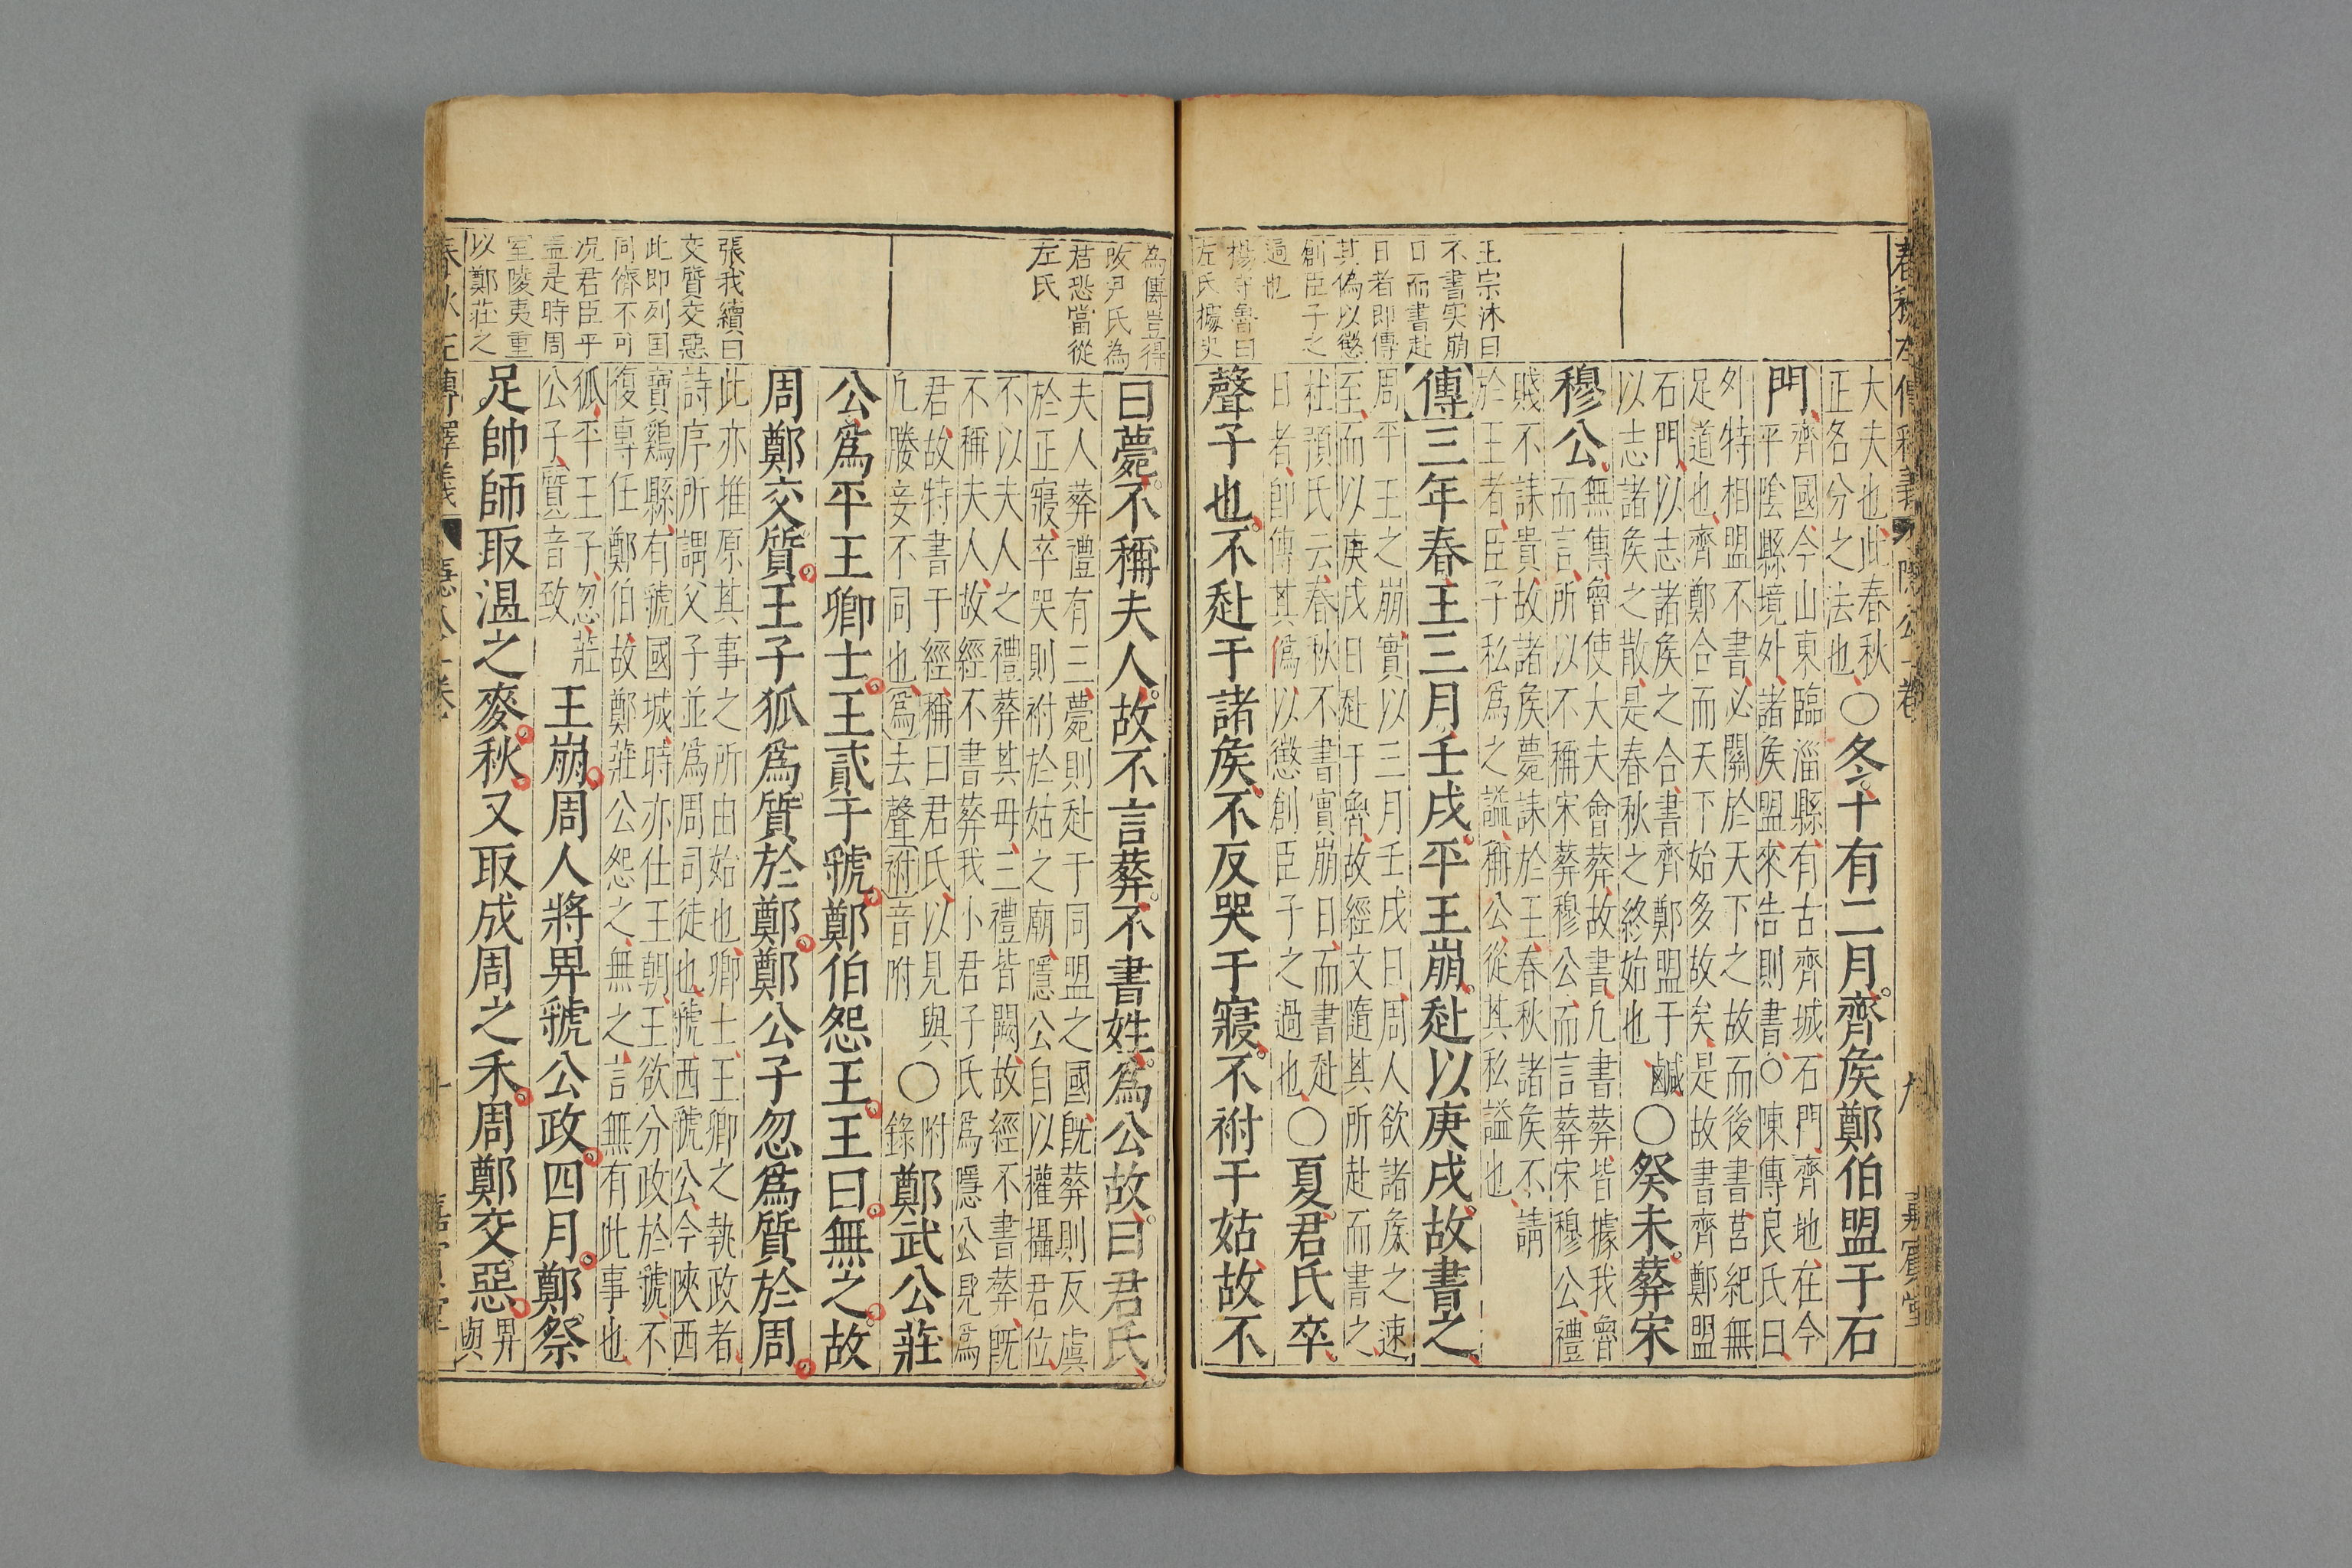 春秋左傳釋義 隱公一卷 九 嘉賓堂
王宗沐曰
不書实崩
日而書赴
日者即傳
其偽以懲
創臣子之
過也
楊守魯曰
左氏據史
大夫也此春秋
正各分之法也〇冬十有二月齊矦鄭伯盟于石
門齊國今山東臨淄縣有古齊城石門齊地在今
平陰縣境外諸矦盟來告則書〇陳傳良氏曰
外特相盟不書必關於天下之故而後書莒紀無
足道也齊鄭合而天下始多故矣是故書齊鄭盟
石門以志諸矦之合書齊鄭盟于鹹
以志諸矦之散是春秋之終始也〇癸未葬宋
穆公無傳魯使大夫會葬故書凢書葬皆據我魯
而言所以不稱宋葬穆公而言葬宋穆公禮
賤不誄貴故諸矦薨誄於王春秋諸矦不請
於王者臣子私爲之謚稱公從其私謚也
傳三年春王三月壬戌平王崩赴以庚戌故書之
周平王之崩實以三月壬戌日周人欲諸矦之速
至而以庚戌日赴于魯故經文隨其所赴而書之
杜預氏云春秋不書實崩日而書赴
日者卽傳其僞以懲創臣子之過也〇夏君氏卒
聲子也不赴于諸矦不反哭于寢不祔于姑故不
為傳豈得
改尹氏為
君恐當從
左氏
張我續曰
交質交惡
此即列国
同儕不可
况君臣乎
盖是時周
室陵夷重
以鄭莊之
曰薨不稱夫人故不言葬不書姓爲公故曰君氏
夫人葬禮有三薨則赴于同盟之國旣葬則反虞
於正寢卒哭則祔於姑之廟隱公自以攝君位
不以夫人之禮葬其母三禮皆闕故經不書葬旣
不稱夫人故經不書葬我小君子氏爲隱公見爲
君故特書于經稱曰君氏以見與
凢媵妾不同也爲去聲祔音附〇附錄鄭武公莊
公爲平王卿士王貳于虢鄭伯怨王王曰無之故
周鄭交質王子狐爲質於鄭鄭公子忽爲質於周
此亦推原其事之所由始也卿士王卿之執政者
詩序所謂父子並爲周司徒也虢西虢公今陝西
寶鷄縣有虢國城時亦仕王朝王欲分政於虢不
復專任鄭伯故鄭莊公怨之無之言無有此事也
狐平王子忽莊
公子質音致王崩周人將畀虢公政四月鄭祭
足帥師取溫之麥秋又取成周之禾周鄭交惡畀
與
春秋左傳釋義 隱公一卷 十 嘉賓堂